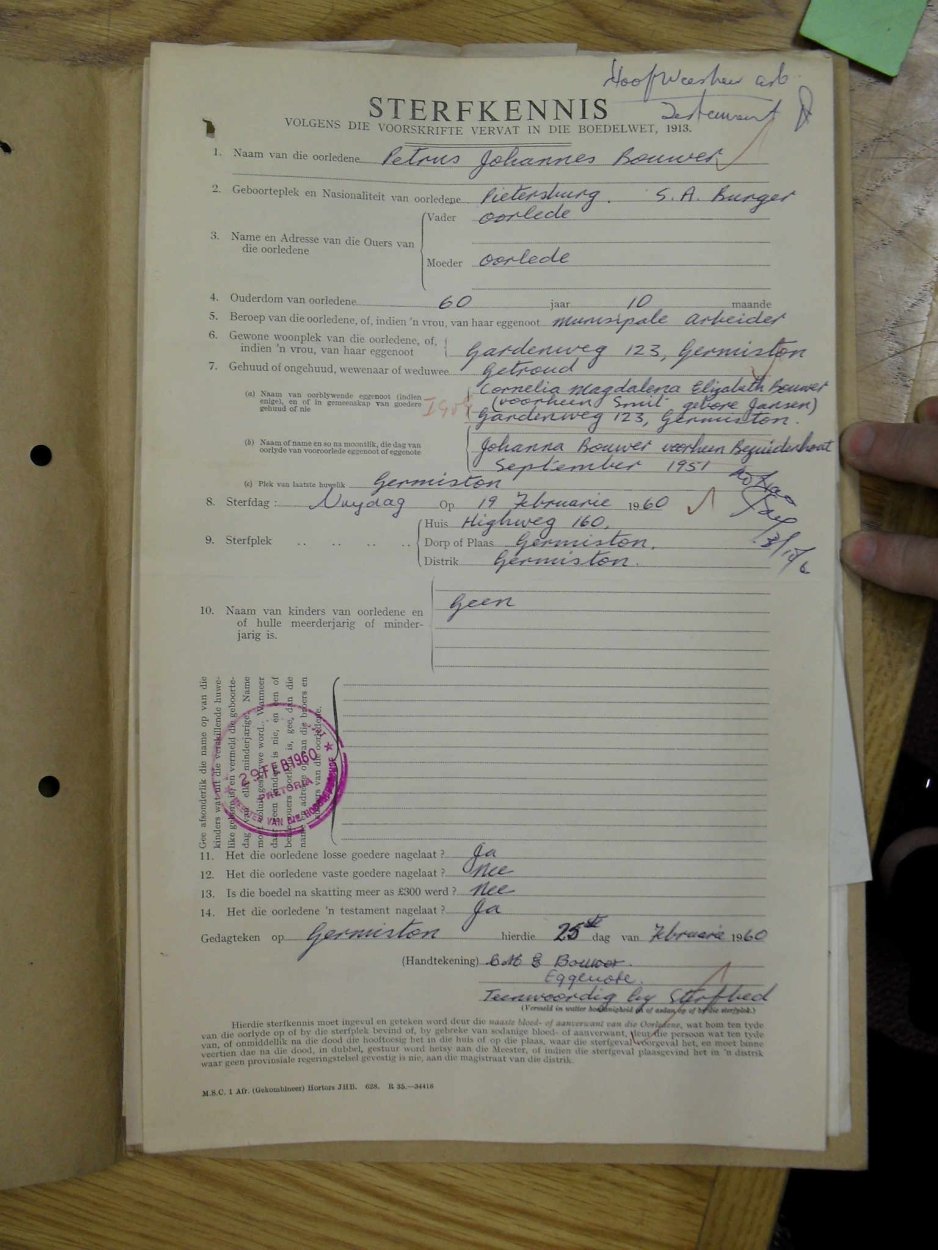 Hoofweesheer asb.
Testament
STERFKENNIS
VOLGENS DIE VOORSKRIFTE VERVAT IN DIE BOEDELWET, 1913.
1. Naam van die oorledene Petrus Johannes Bouwer
2. Geboorteplek en Nasionaliteit van oorledene Pietersburg. S. A. Burger
Vader oorlede
3. Name en Adresse van die Ouers van
die oorledene
Moeder oorlede
4. Ouderdom van oorledene 60 jaar 10 maande
5. Beroep van die oorledene, of, indien 'n vrou, van haar eggenoot Munisipale Arbeider
6. Gewone woonplek van die oorledene, of,
indien 'n vrou, van haar eggenoot Gardenweg 123, Germiston
7. Gehuud of ongehuud, wewenaar of weduwee Getroud
(a) Naam van oorblywende eggenoot (indien
enige), en of in gemeenskap van goedere
gehuud of nie
Cornelia Magdalena Elizabeth Bouwer
(voorheen Smit gebore Jansen)
Gardenweg 123, Germiston.
(b) Naam of name en so na moontlik, die dag van
oorlyde van vooroorlede eggenoot of eggenote
Johanna Bouwer voorheen Bezuidenhout
September 1951
(c) Plek van laaste huwelik Germiston
8. Sterfdag: Vrydag Op 19 Februarie 1960
Huis Highweg 160.
9. Sterfplek Dorp of Plaas Germiston.
Distrik Germiston.
10. Naam van kinders van oorledene en
of hulle meerderjarig of minder-
jarig is.
Geen
Gee afsonderlik die name op van die
kinders wat uit die verskillende huwe-
like gebore is en vermeld die geboorte-
dag van elke minderjarige. Name
29 FEB 1960
PRETORIA
11. Het die oorledene losse goedere nagelaat? Ja
12. Het die oorledene vaste goedere nagelaat? Nee
13. Is die boedel na skatting meer as £300 werd? Nee
14. Het die oorledene 'n testament nagelaat? Ja
Gedagteken op Germiston hierdie 25ste dag van Februarie 1960
(Handtekening) C M E Bouwer.
Eggenote.
Teenwoordig by Sterfbed
(Vermeld in watter hoedanigheid en of aldan op of by die sterfplek.)
Hierdie sterfkennis moet ingevul en geteken word deur die naaste bloed- of aanverwant van die Oorledene, wat hom ten tyde
van die oorlyde op of by die sterfplek bevind of, by gebreke van sodanige bloed- of aanverwant, deur die persoon wat ten tyde
van, of onmiddellik na die dood die hooftoesig het in die huis of op die plaas, waar die sterfgeval voorgeval het, en moet binne
veertien dae na die dood, in dubbel, gestuur word hetsy aan die Meester, of indien die sterfgeval plaasgevind het in 'n distrik
waar geen provinsiale regeringstebel gevestig is nie, aan die magistraat van die distrik.
M.S.C. 1 Afr. (Gekombineer) Hortors JHB. 628. R 35.—34418